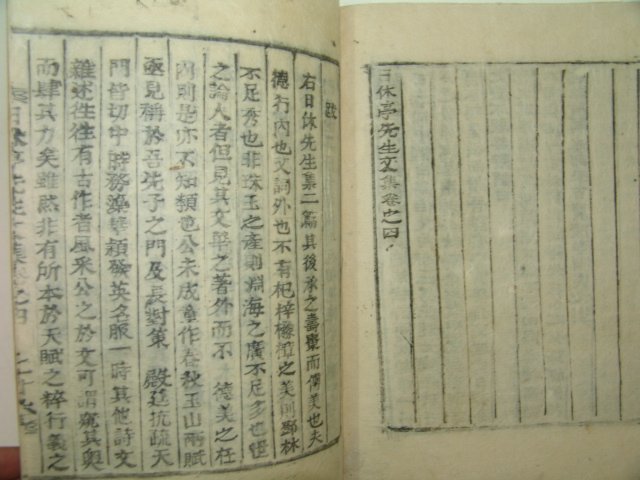 日休亭先生文集卷之四
跋
右日休先生集二篇其後承之壽棗而傳美也夫
德行內也文詞外也不有杞梓樟之美則鄧林
不足秀也非珠玉之產則淵海之廣不足多也世
之論人者但見其文華之著外而不 德美之在
內則是亦不知類也公未成童作春秋玉山兩賦
亟見稱於吾先子之門及長對策 殿廷抗疏天
門皆切中時務藻華穎發英名服一時其他詩文
雜述往往有古作者風采公之於文可謂窺其奧
而肆其力矣雖然非有所本於天賦之粹行義之
日休亭先生文集卷之四